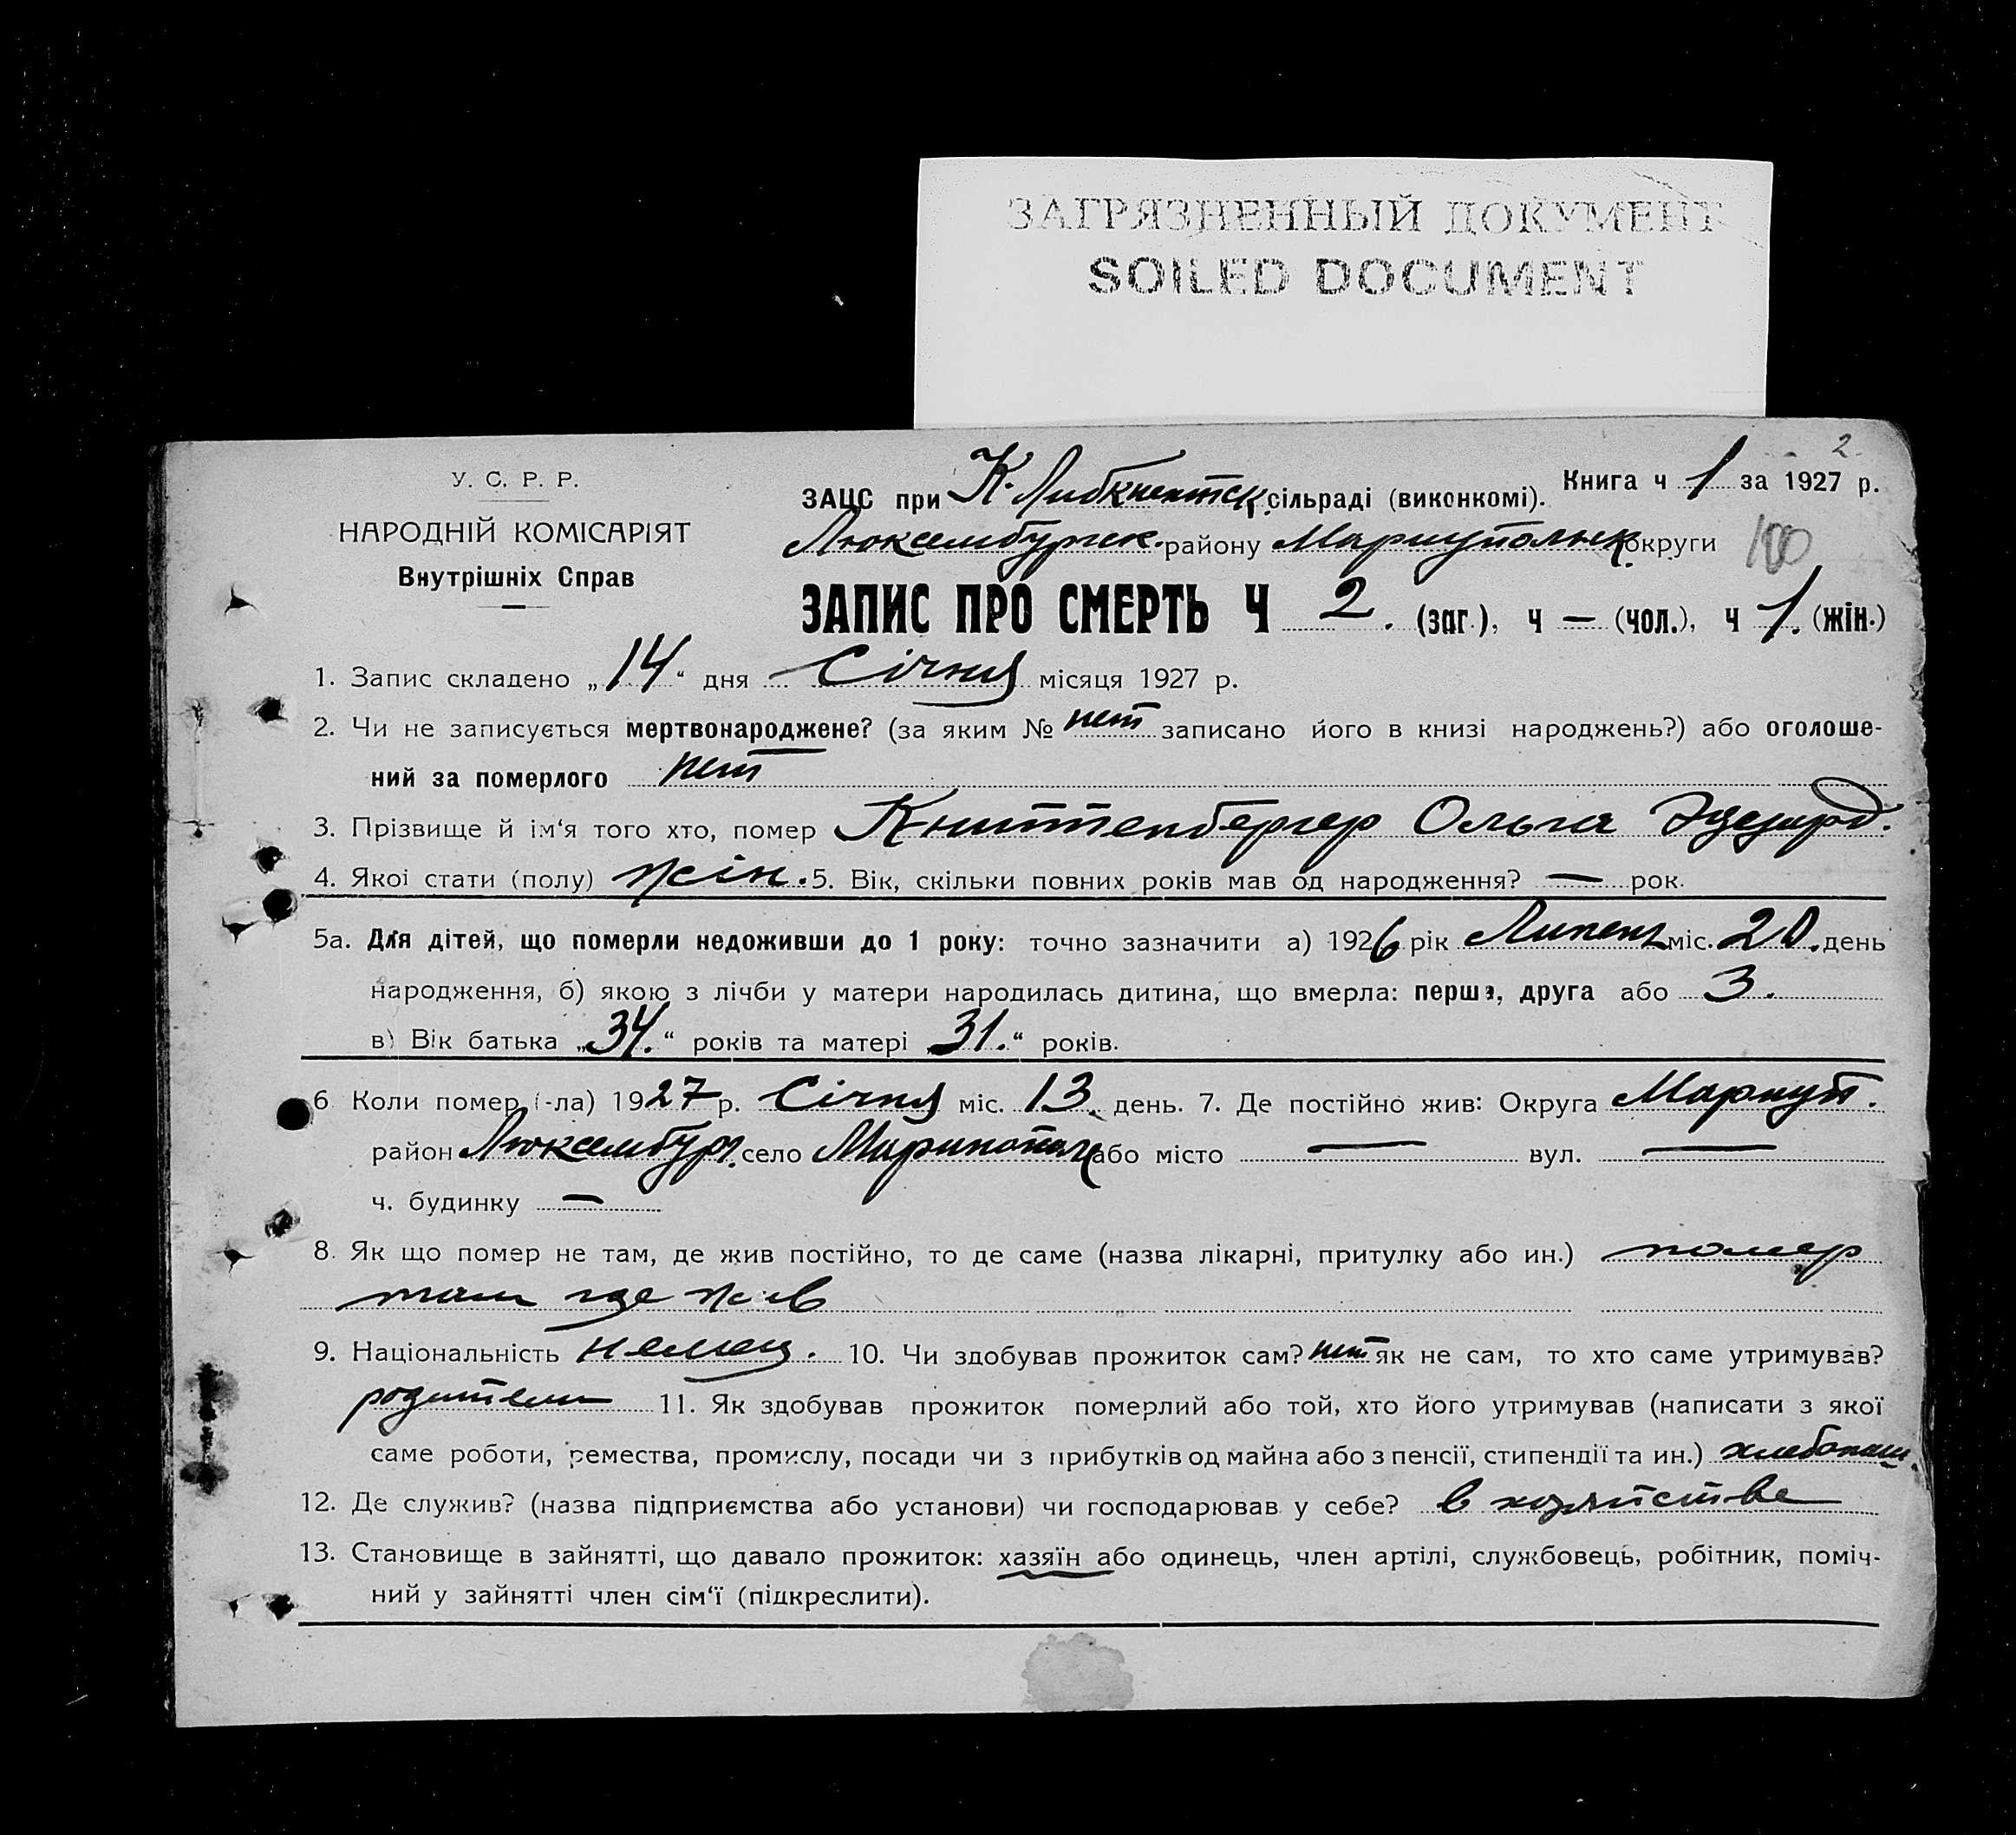 ЗАГРЯЗНЕННЫЙ ДОКУМЕНТ
SOILED DOCUMENT
2
У. С. Р. Р.
НАРОДНІЙ КОМІСАРІЯТ
Внутрішніх Справ
ЗАЦС при К. Либкнехтск. сільраді (виконкомі). Книга ч 1 за 1927 р.
Люксембургск. району Мариупольск. округи 100
ЗАПИС ПРО СМЕРТЬ Ч 2. (заг.), ч — (чол.), ч 1. (жін.)
1. Запис складено „14“ дня Січня місяця 1927 р.
2. Чи не записується мертвонароджене? (за яким № нет записано його в книзі народжень?) або оголоше-
ний за померлого нет
3. Прізвище й ім‘я того хто, помер Книттенбергер Ольга Эдуард.
4. Якої стати (полу) жін. 5. Вік, скільки повних років мав од народження? — рок.
5а. Для дітей, що померли недоживши до 1 року: точно зазначити а) 1926 рік Липень міс. 20. день
народження, б) якою з лічби у матери народилась дитина, що вмерла: перша, друга або 3.
в) Вік батька „34.“ років та матері „31.“ років.
6 Коли помер (-ла) 1927 р. Січня міс. 13. день. 7. Де постійно жив: Округа Мариуп.
район Люксембург. село або місто — вул. —
ч. будинку —
8. Як що помер не там, де жив постійно, то де саме (назва лікарні, притулку або ин.) помер
там где жив
9. Національність немец. 10. Чи здобував прожиток сам? нет як не сам, то хто саме утримував?
родители 11. Як здобував прожиток померлий або той, хто його утримував (написати з якої
саме роботи, ремества, промислу, посади чи з прибутків од майна або з пенсії, стипендії та ин.) хлебопаш.
12. Де служив? (назва підприємства або установи) чи господарював у себе? в хозяйстве
13. Становище в зайнятті, що давало прожиток: хазяїн або одинець, член артілі, службовець, робітник, поміч-
ний у зайнятті член сім‘ї (підкреслити).